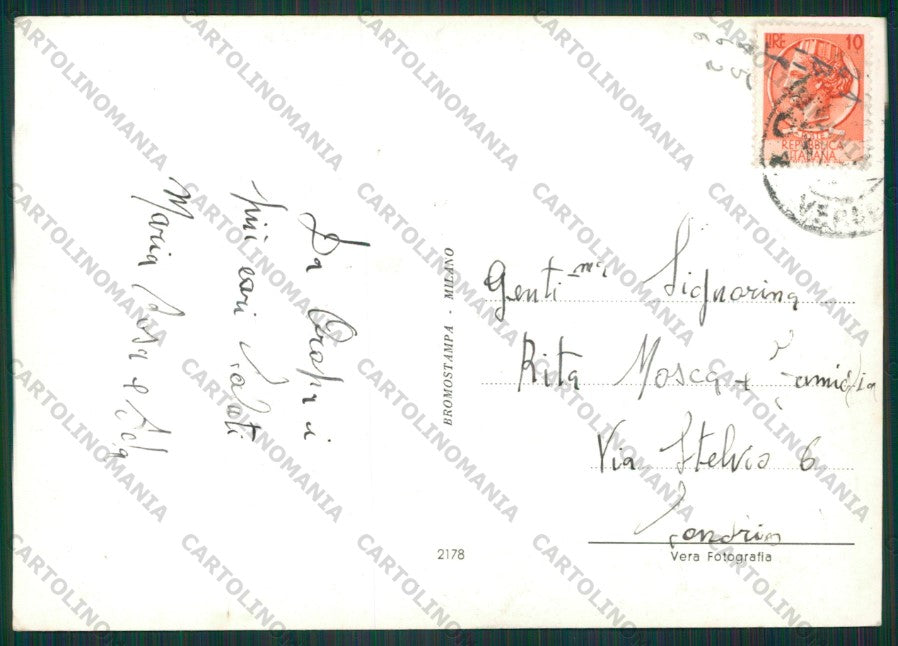 Da Oropa i
più cari saluti
Maria Rosa e
BROMOSTAMPA - MILANO
2178
LIRE 10
REPUBBLICA
ITALIANA
Genti.ma Signorina
Rita Mosca + Famiglia
Via Stelvio 6
Sondrio
Vera Fotografia
CARTOLINOMANIA